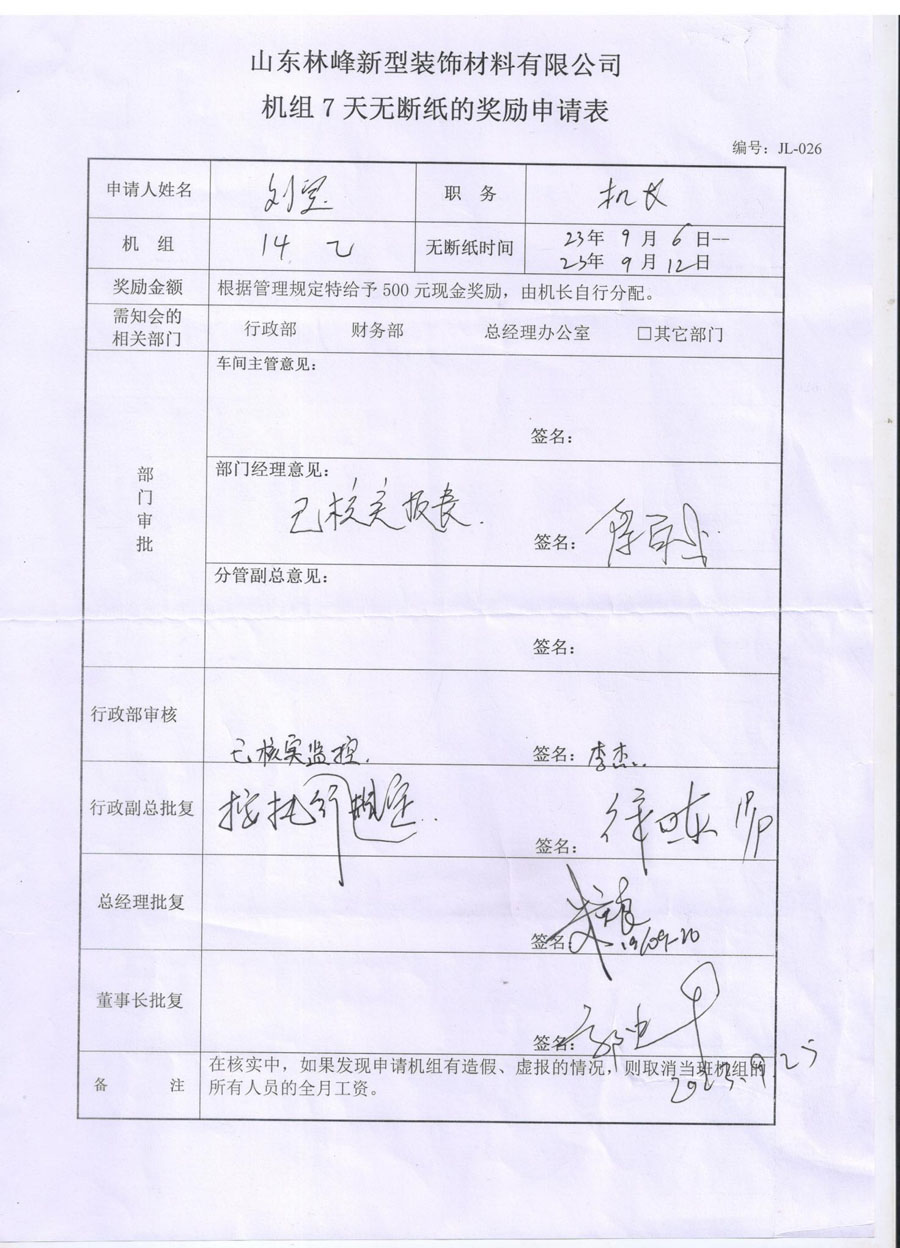 山东林峰新型装饰材料有限公司
机组 7 天无断纸的奖励申请表
编号：JL-026
申请人姓名 职 务 机长
机 组 14. 乙 无断纸时间 23年 9 月 6 日--
23年 9 月 12日
奖励金额 根据管理规定特给予 500 元现金奖励，由机长自行分配。
需知会的
相关部门 行政部 财务部 总经理办公室 □其它部门
部门审批
车间主管意见：
签名：
部门经理意见：
已核实
签名：
分管副总意见：
签名：
行政部审核
已核实监控.
签名：李杰
行政副总批复
按执行规定
签名：
总经理批复
签名
董事长批复
签名：
2023.9.25
备 注 在核实中，如果发现申请机组有造假、虚报的情况，则取消当班机组的
所有人员的全月工资。